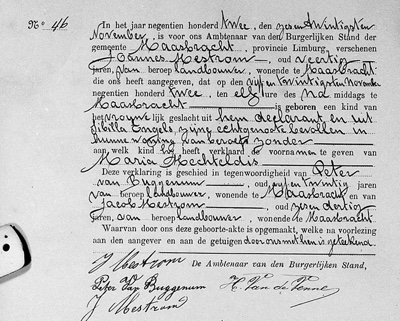 No. 46
In het jaar negentien honderd twee, den zes en twintigsten
November, is voor ons Ambtenaar van den Burgerlijken Stand der
gemeente Maasbracht, provincie Limburg, verschenen
Joannes Mestrom, oud veertig
jaren, van beroep landbouwer, wonende te Maasbracht
die ons heeft aangegeven, dat op den vijf en twintigsten November
negentien honderd twee, ten elf ure des na middags te
Maasbracht is geboren een kind van
het vrouwelijk geslacht uit hem declarant, en uit
Sibilla Engels, zijne echtgenoote bevallen in
hunne woning van beroep zonder
aan welk kind hij heeft verklaard de voornamen te geven van
Maria Mechteldis
Deze verklaring is geschied in tegenwoordigheid van Peter
van Buggenum, oud vijf en twintig jaren
van beroep landbouwer, wonende te Maasbracht en van
Jacob Mestrom, oud zes en dertig
jaren, van beroep landbouwer, wonende te Maasbracht.
Waarvan door ons deze geboorte-akte is opgemaakt, welke na voorlezing
aan den aangever en aan de getuigen door ons met hen is geteekend.
J Mestrom De Ambtenaar van den Burgerlijken Stand,
Peter Van Buggenum H. Van de Venne
J Mestrom